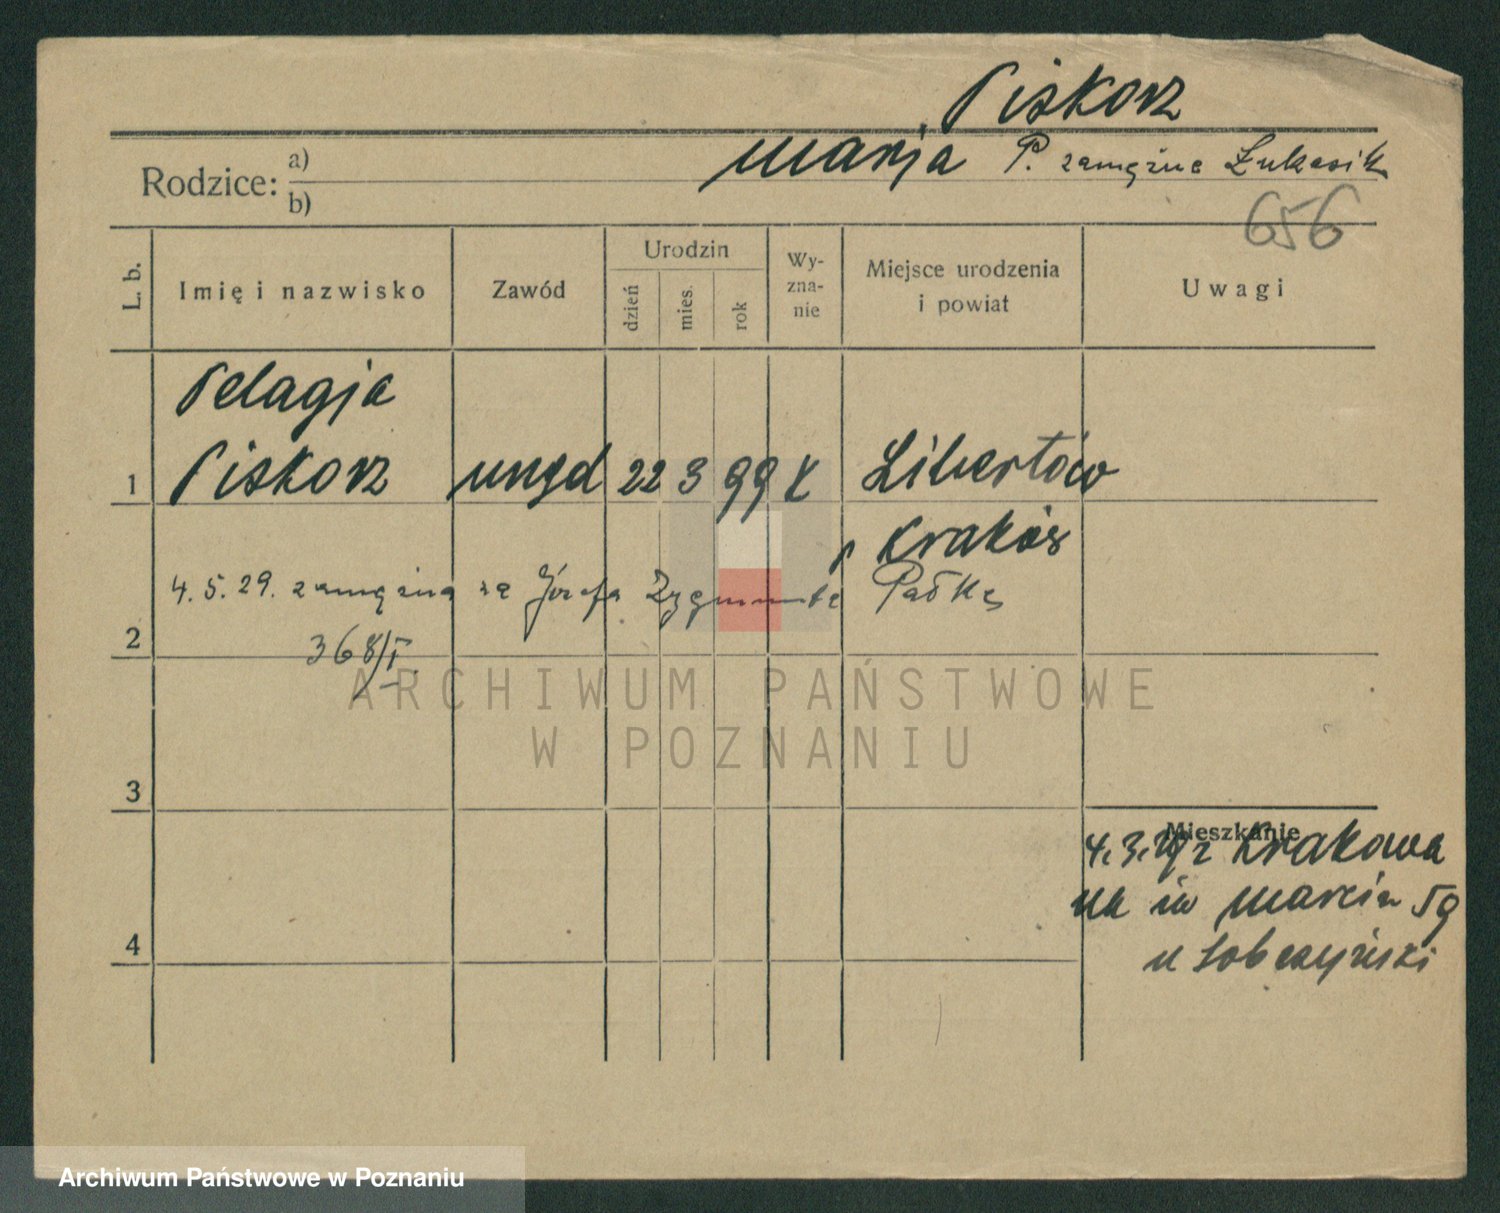 Piskorz
Rodzice: a) Marja P. zamężna Łukasik
b)
656
L. b.
Imię i nazwisko
Zawód
Urodzin
dzień
mies.
rok
Wy-
zna-
nie
Miejsce urodzenia
i powiat
Uwagi
Pelagja
1 Piskorz urzęd 22 3 99 k Libertów
p Kraków
4.5.29. zamężna za Józefa Zygmunta Pałkę
2 368/I
ARCHIWUM PAŃSTWOWE
W POZNANIU
3
Mieszkanie
4.3. z Krakowa
na św Marcin 59
4 u Sobczyński
Archiwum Państwowe w Poznaniu